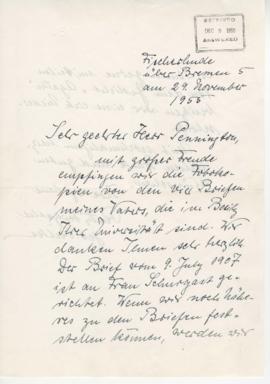 DEC 5 1955
ANSWERED
Fischerhude
über Bremen 5
am 29. November
1955
Sehr geehrter Herr Pennington,
mit großer Freude
empfingen wir die Fotoko-
pien von den vier Briefen
meines Vaters, die im Besitz
Ihrer Universität sind. Wir
danken Ihnen sehr herzlich.
Der Brief vom 9. July 1907
ist an Frau Schurgast ge-
richtet. Wenn wir noch nähe-
res zu den Briefen fest-
stellen können, werden wir